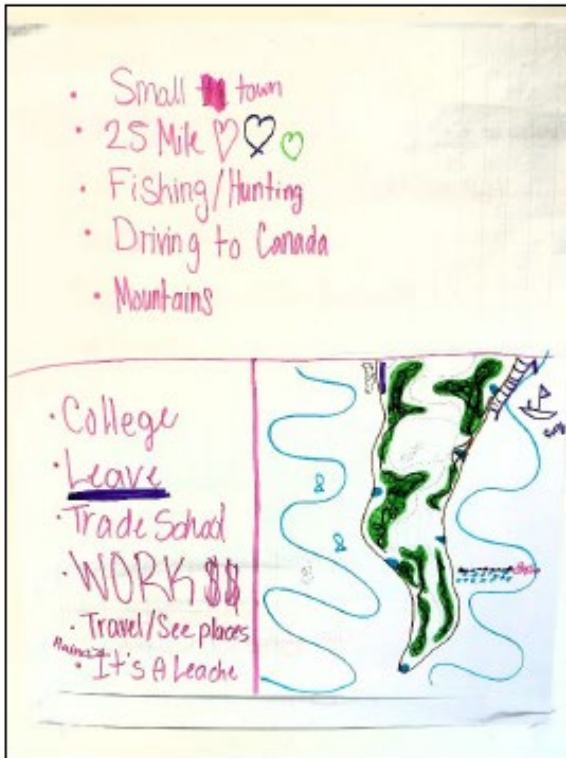 · Small town
· 25 Mile
· Fishing/Hunting
· Driving to Canada
· Mountains
· College
· Leave
· Trade School
· WORK $$
· Travel/See places
· It's A Leache